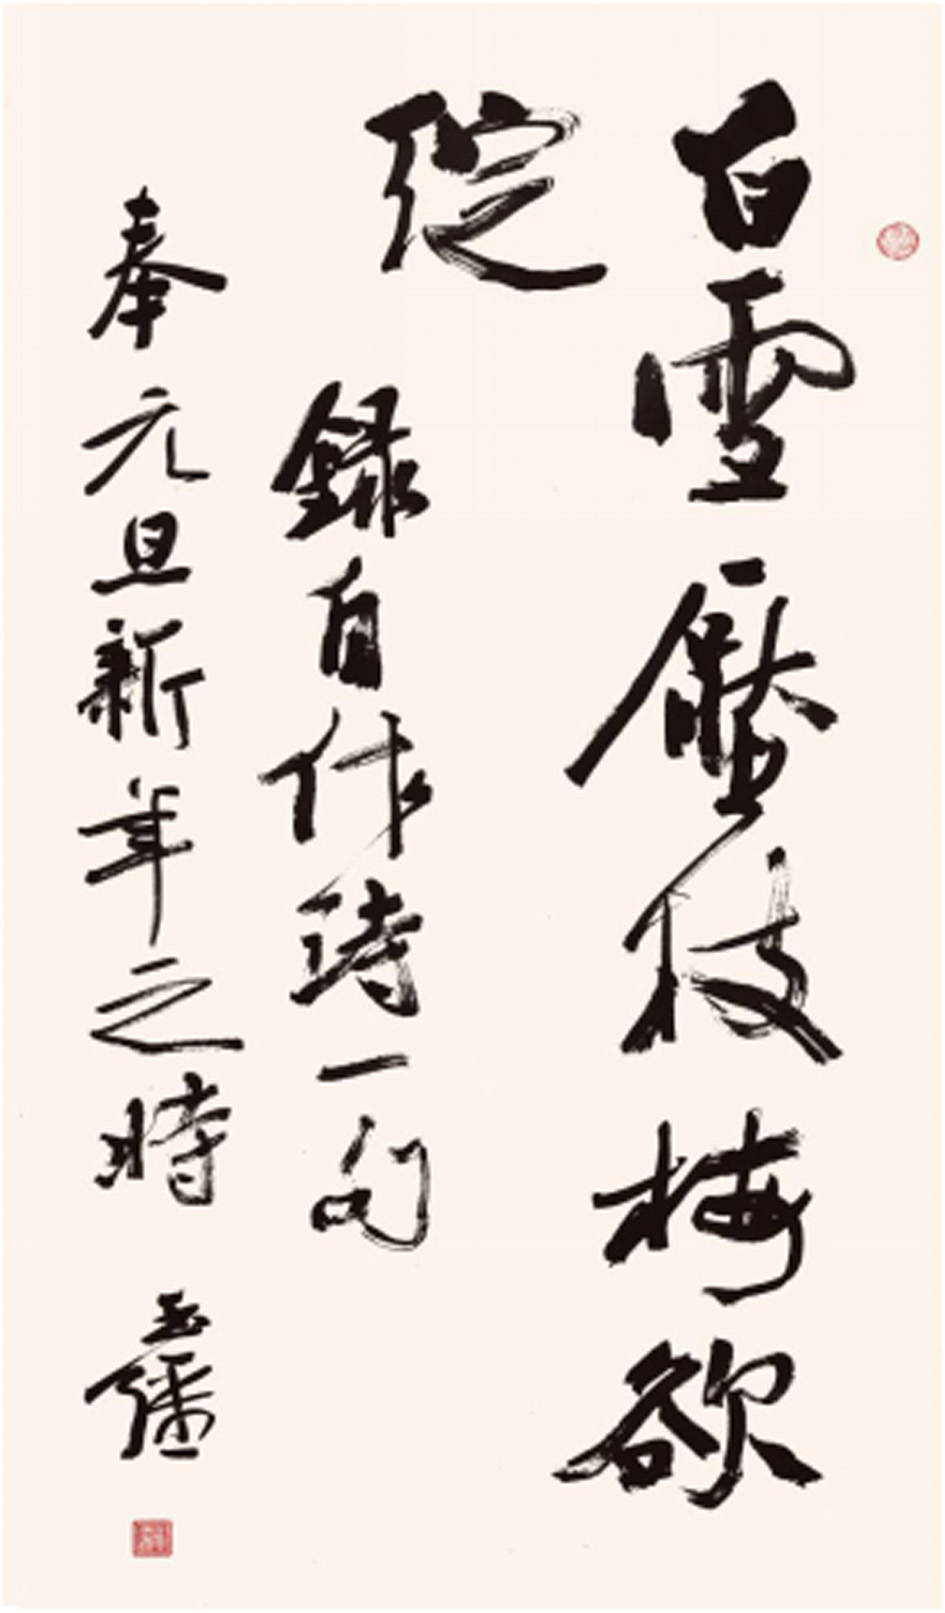 白雪壓枝梅欲
綻
録自作詩一句
奉元旦新年之時 玉